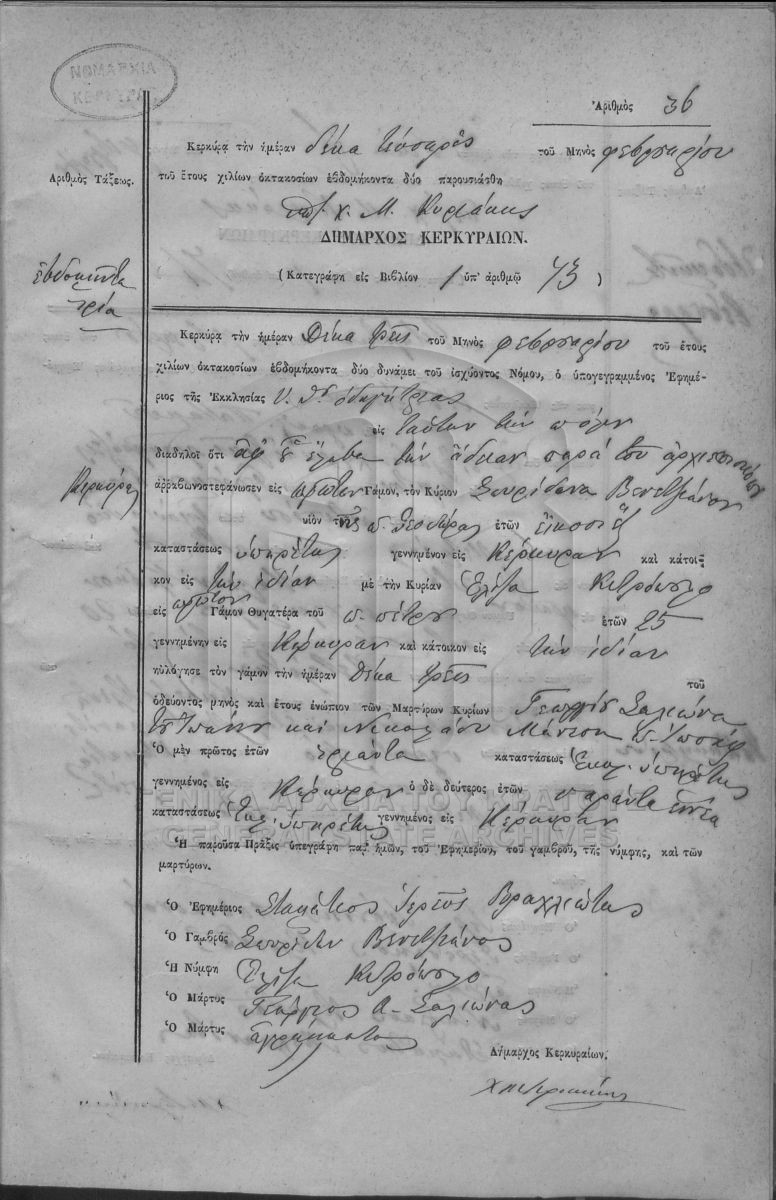 ΝΟΜΑΡΧΙΑ
ΚΕΡΚΥΡΑΣ
Ἀριθμὸς 36
Κερκύρα τὴν ἡμέραν δέκα τέσσαρες τοῦ Μηνὸς φεβρουαρίου
Ἀριθμὸς Τάξεως.
τοῦ ἔτους χιλίων ὀκτακοσίων ἑβδομήκοντα δύο παρουσιάσθη
Χ. Μ. Κυριάκης
ΔΗΜΑΡΧΟΣ ΚΕΡΚΥΡΑΙΩΝ.
ἑβδομῆντα
τρία
(Κατεγράφη εἰς Βιβλίον 1 ὑπ' ἀριθμῷ 73)
Κερκύρα τὴν ἡμέραν Δέκα τρεῖς τοῦ Μηνὸς φεβρουαρίου τοῦ ἔτους
χιλίων ὀκτακοσίων ἑβδομήκοντα δύο δυνάμει τοῦ ἰσχύοντος Νόμου, ὁ ὑπογεγραμμένος Ἐφημέ-
ριος τῆς Ἐκκλησίας Υ. Θ. ὁδηγήτριας
εἰς ταύτην τὴν πόλιν
διαδηλοῖ ὅτι ἀφ' οὗ ἔλαβα τὴν ἄδειαν παρὰ τοῦ ἀρχιεπισκόπου
Κερκύρας
ἀρραβωνοστεφάνωσεν εἰς πρῶτον Γάμον, τὸν Κύριον Σπυρίδωνα Βενετσιάνον
υἱὸν τῆς π. Θεοδώρας ἐτῶν εἴκοσι ἓξ
καταστάσεως ὑπηρέτης γεννημένον εἰς Κέρκυραν καὶ κάτοι-
κον εἰς τὴν ἰδίαν μὲ τὴν Κυρίαν Ἐλίζα Κετρόπυλο
εἰς πρῶτον Γάμον Θυγατέρα τοῦ π. πέτρου ἐτῶν 25
γεννημένην εἰς Κέρκυραν καὶ κάτοικον εἰς τὴν ἰδίαν
ηὐλόγησε τὸν γάμον τὴν ἡμέραν Δέκα τρεῖς τοῦ
ὁδεύοντος μηνὸς καὶ ἔτους ἐνώπιον τῶν Μαρτύρων Κυρίων Γεωργίου Σαλιώνα
καὶ Νικολάου Μάνεση
Ὁ μὲν πρῶτος ἐτῶν τριάντα καταστάσεως ὑπηρέτης
γεννημένος εἰς Κέρκυραν ὁ δὲ δεύτερος ἐτῶν σαράντα ἐννέα
καταστάσεως ὑπηρέτης γεννημένος εἰς Κέρκυραν
ΓΕΝΙΚΑ ΑΡΧΕΙΑ ΤΟΥ ΚΡΑΤΟΥΣ
GENERAL STATE ARCHIVES
Ἡ παροῦσα Πρᾶξις ὑπεγράφη παρ' ἡμῶν, τοῦ Ἐφημερίου, τοῦ γαμβροῦ, τῆς νύμφης, καὶ τῶν
μαρτύρων.
Ὁ Ἐφημέριος Σταμάτιος Ἱερεὺς Βραχλιώτης
Ὁ Γαμβρὸς Σπυρίδων Βενετσιάνος
Ἡ Νύμφη Ἐλίζα Κετρόπυλο
Ὁ Μάρτυς Γεώργιος Α. Σαλιώνας
Ὁ Μάρτυς ἀγράμματος
Δήμαρχος Κερκυραίων.